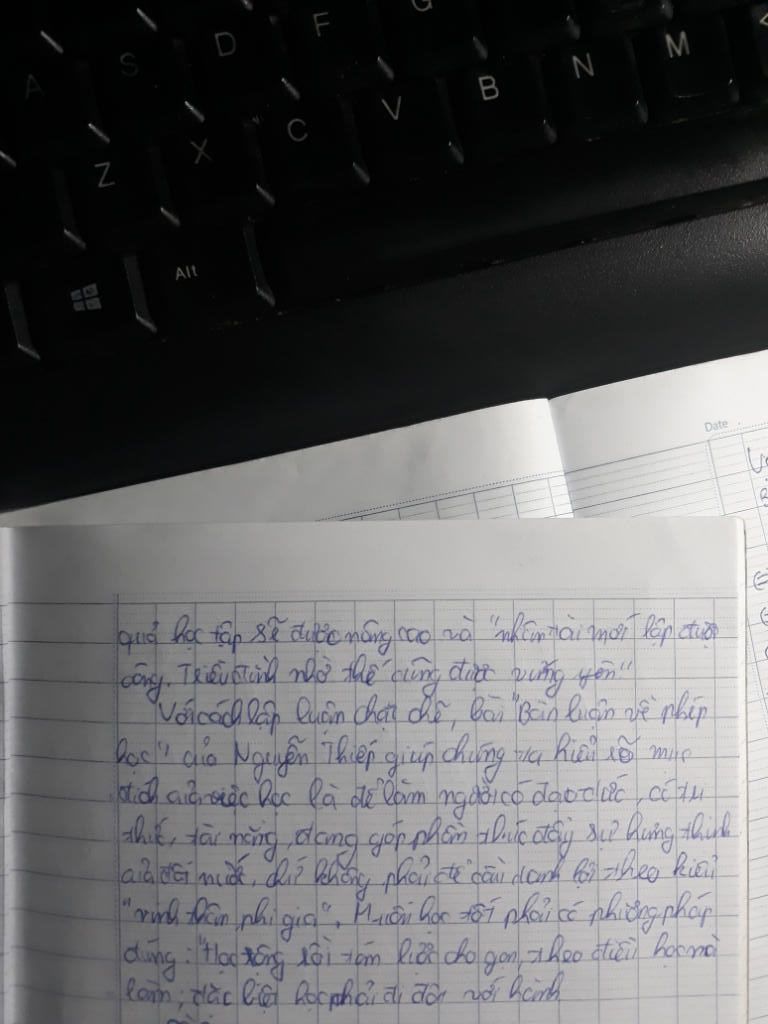 A S D F G
Z X C V B N M
Alt
Date
quả học tập sẽ được nâng cao và "nhân tài mới lập được
công. Triều đình nhờ thế cũng được vững yên."
Với cách lập luận chặt chẽ, bài "Bàn luận về phép
học" của Nguyễn Thiếp giúp chúng ta hiểu rõ mục
đích của việc học là để làm người có đạo đức, có tri
thức, tài năng, đóng góp phần thúc đẩy sự hưng thịnh
của đất nước, chứ không phải để cầu danh lợi theo kiểu
"vinh thân, phì gia". Muốn học tốt phải có phương pháp
đúng: "Học rộng rồi tóm lược cho gọn, theo điều học mà
làm, đặc biệt học phải đi đôi với hành